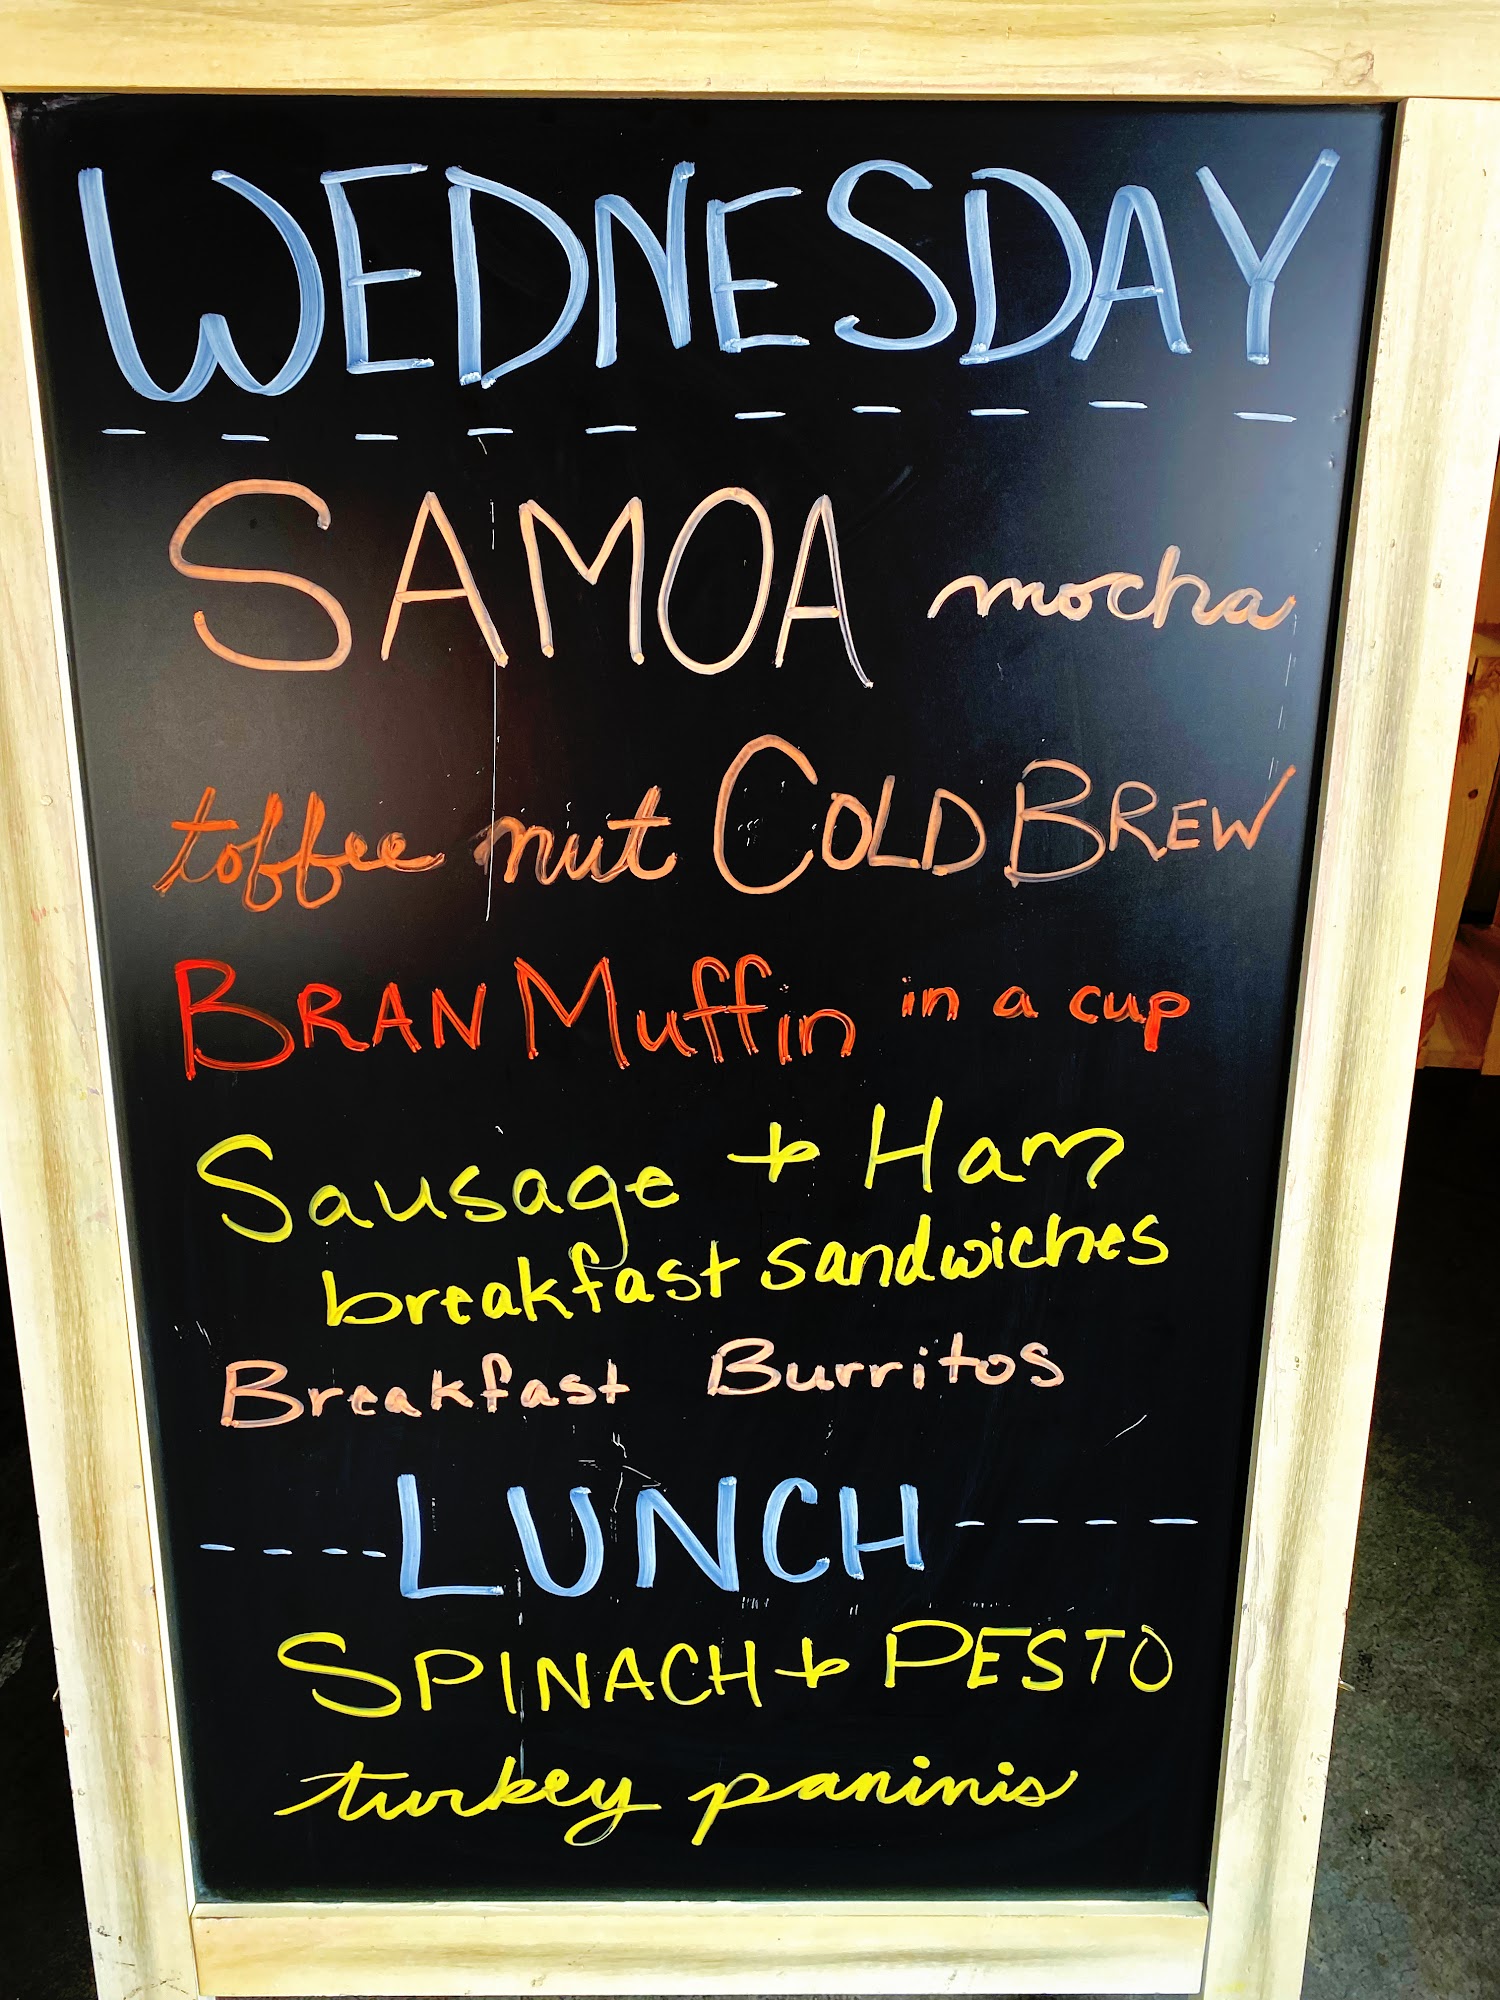 WEDNESDAY
SAMOA mocha
toffee nut COLD BREW
BRAN Muffin in a cup
Sausage + Ham
breakfast sandwiches
Breakfast Burritos
LUNCH
SPINACH + PESTO
turkey paninis